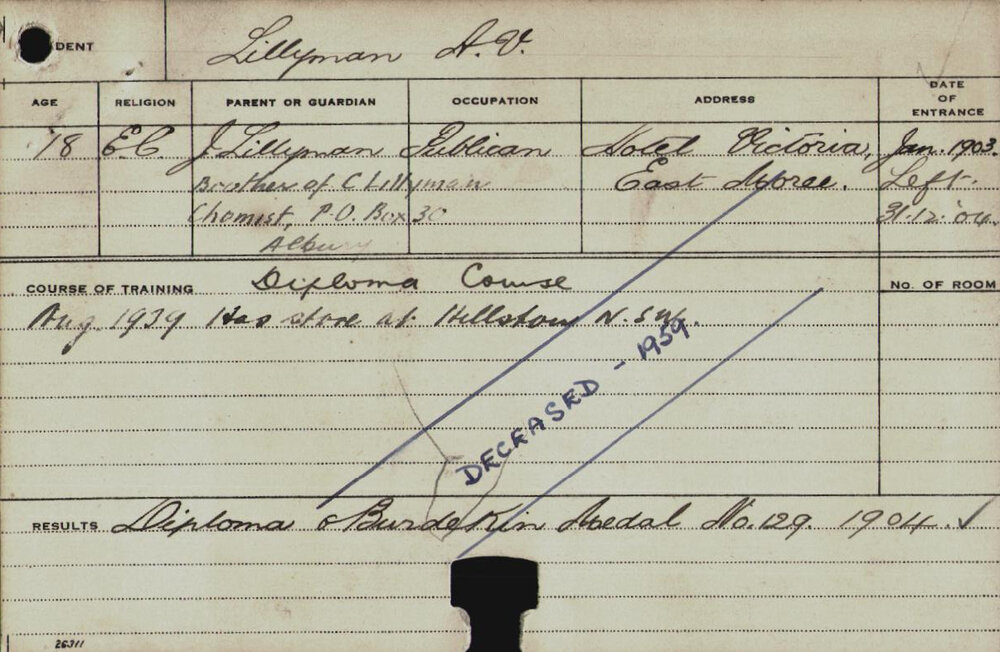 DENT Lillyman A. V.
AGE RELIGION PARENT OR GUARDIAN OCCUPATION ADDRESS DATE OF ENTRANCE
18 E.C. J. Lillyman Publican Hotel Victoria, Jan. 1903.
Brother of C Lillyman East Moree. Left.
Chemist, P.O. Box 30 31.12.'04.
Albury
COURSE OF TRAINING Diploma Course No. OF ROOM
Aug. 1939 Has store at Hillston N.S.W.
DECEASED - 1959.
RESULTS Diploma & Burdekin Medal No. 129. 1904. ✓
26311